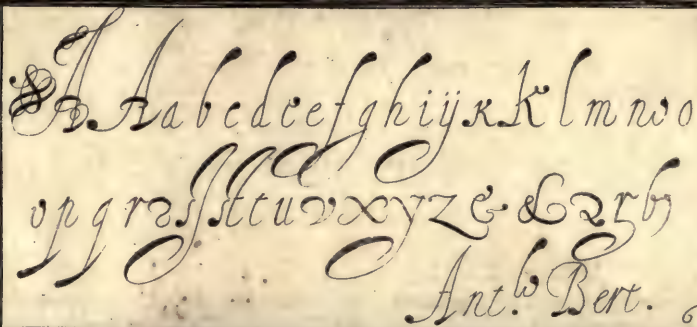 A A a b c d e e f g h i ij k k l m n o o
v p q r 2 s ſ st t u v x y z & & 2 r b
Ant.º Bert.